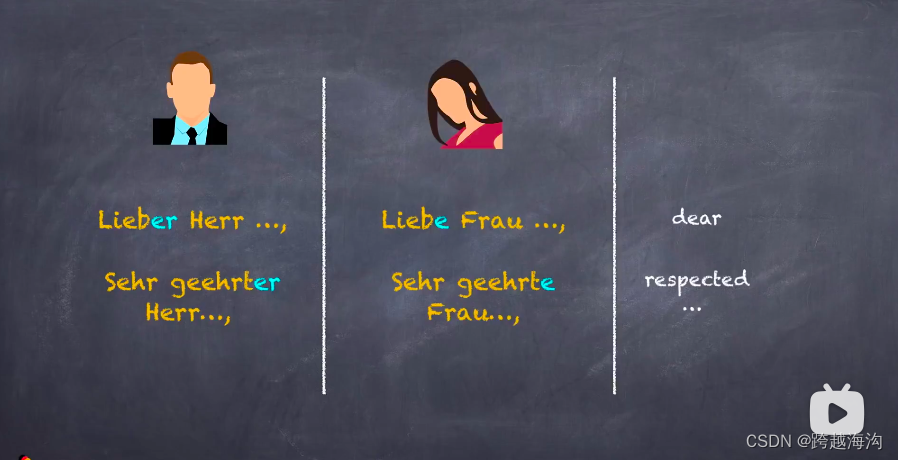 Lieber Herr ...,
Liebe Frau ...,
dear
Sehr geehrter
Herr...,
Sehr geehrte
Frau...,
respected
...
CSDN @跨越海沟